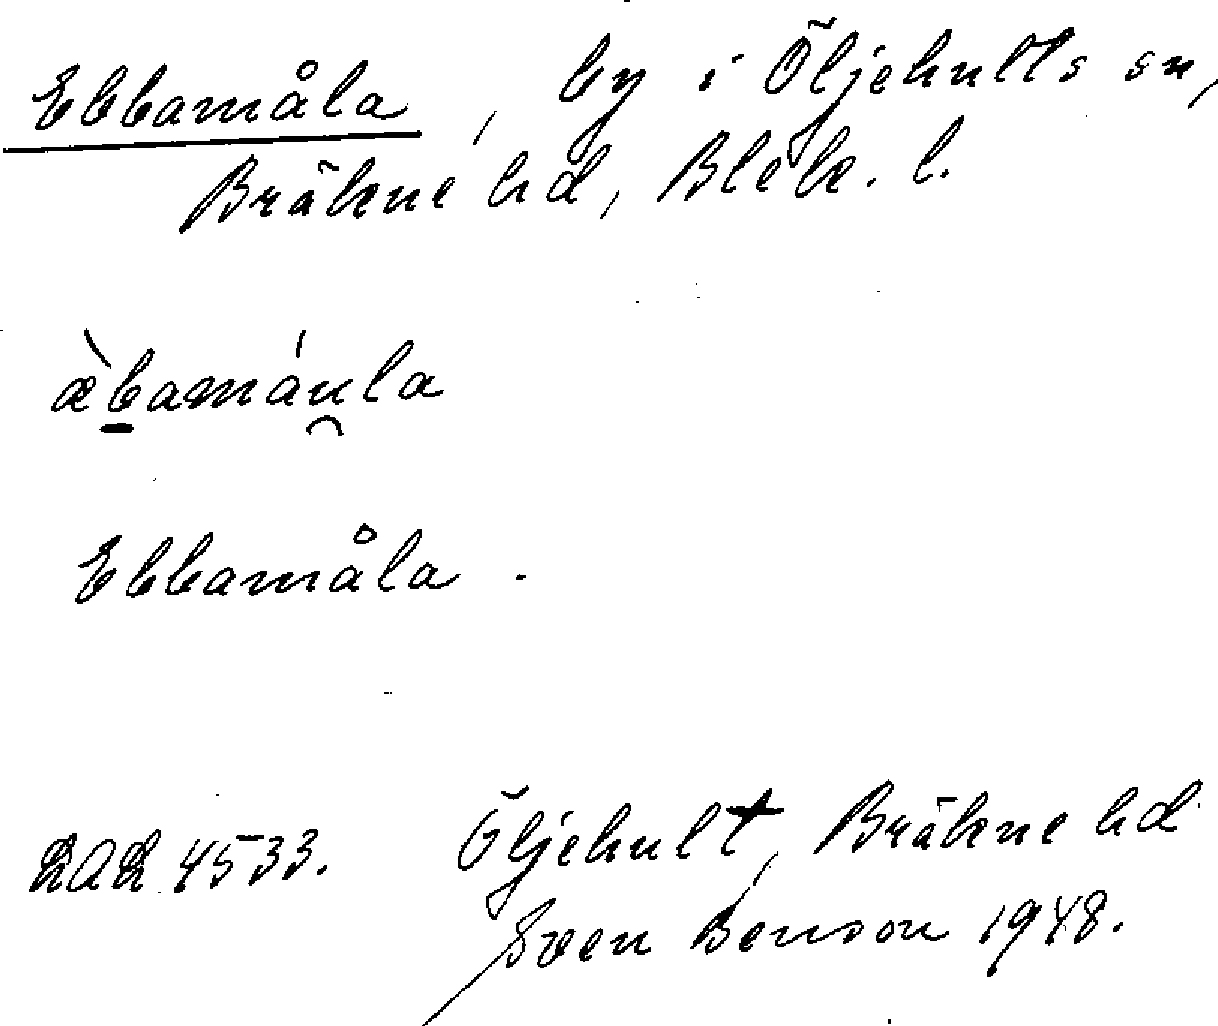 Ebbamåla, by i Öljehults sn,
Bräkne hd, Blek. l.
æ̀b̲amáu̯la
Ebbamåla.
4533. Öljehult, Bräkne hd
Sven Benson 1948.